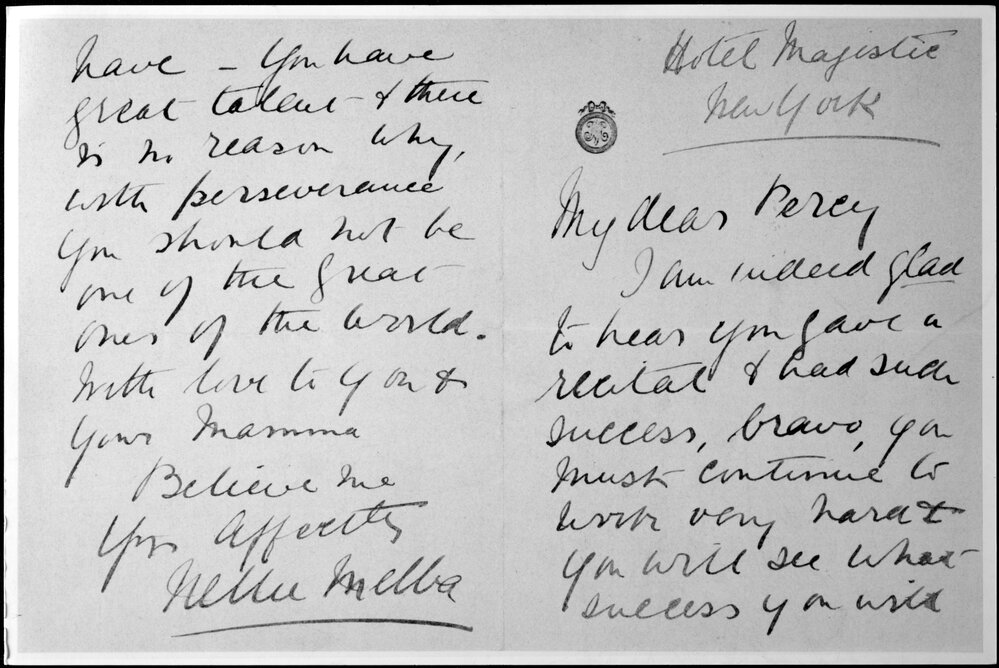 Hotel Magistic
New York
My dear Percy
I am indeed glad
to hear you gave a
recital & had such
success, bravo, you
must continue to
work very hard &
you will see what
success you will
have – You have
great talent & there
is no reason why,
with perseverance
you should not be
one of the great
ones of the world.
With love to you &
your Mamma
Believe me
Yrs Affectly
Nellie Melba